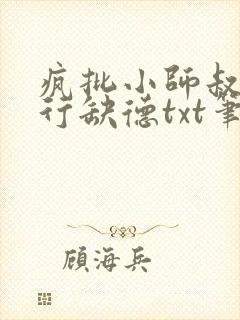 疯批小师叔
行缺德txt筆
顧海兵